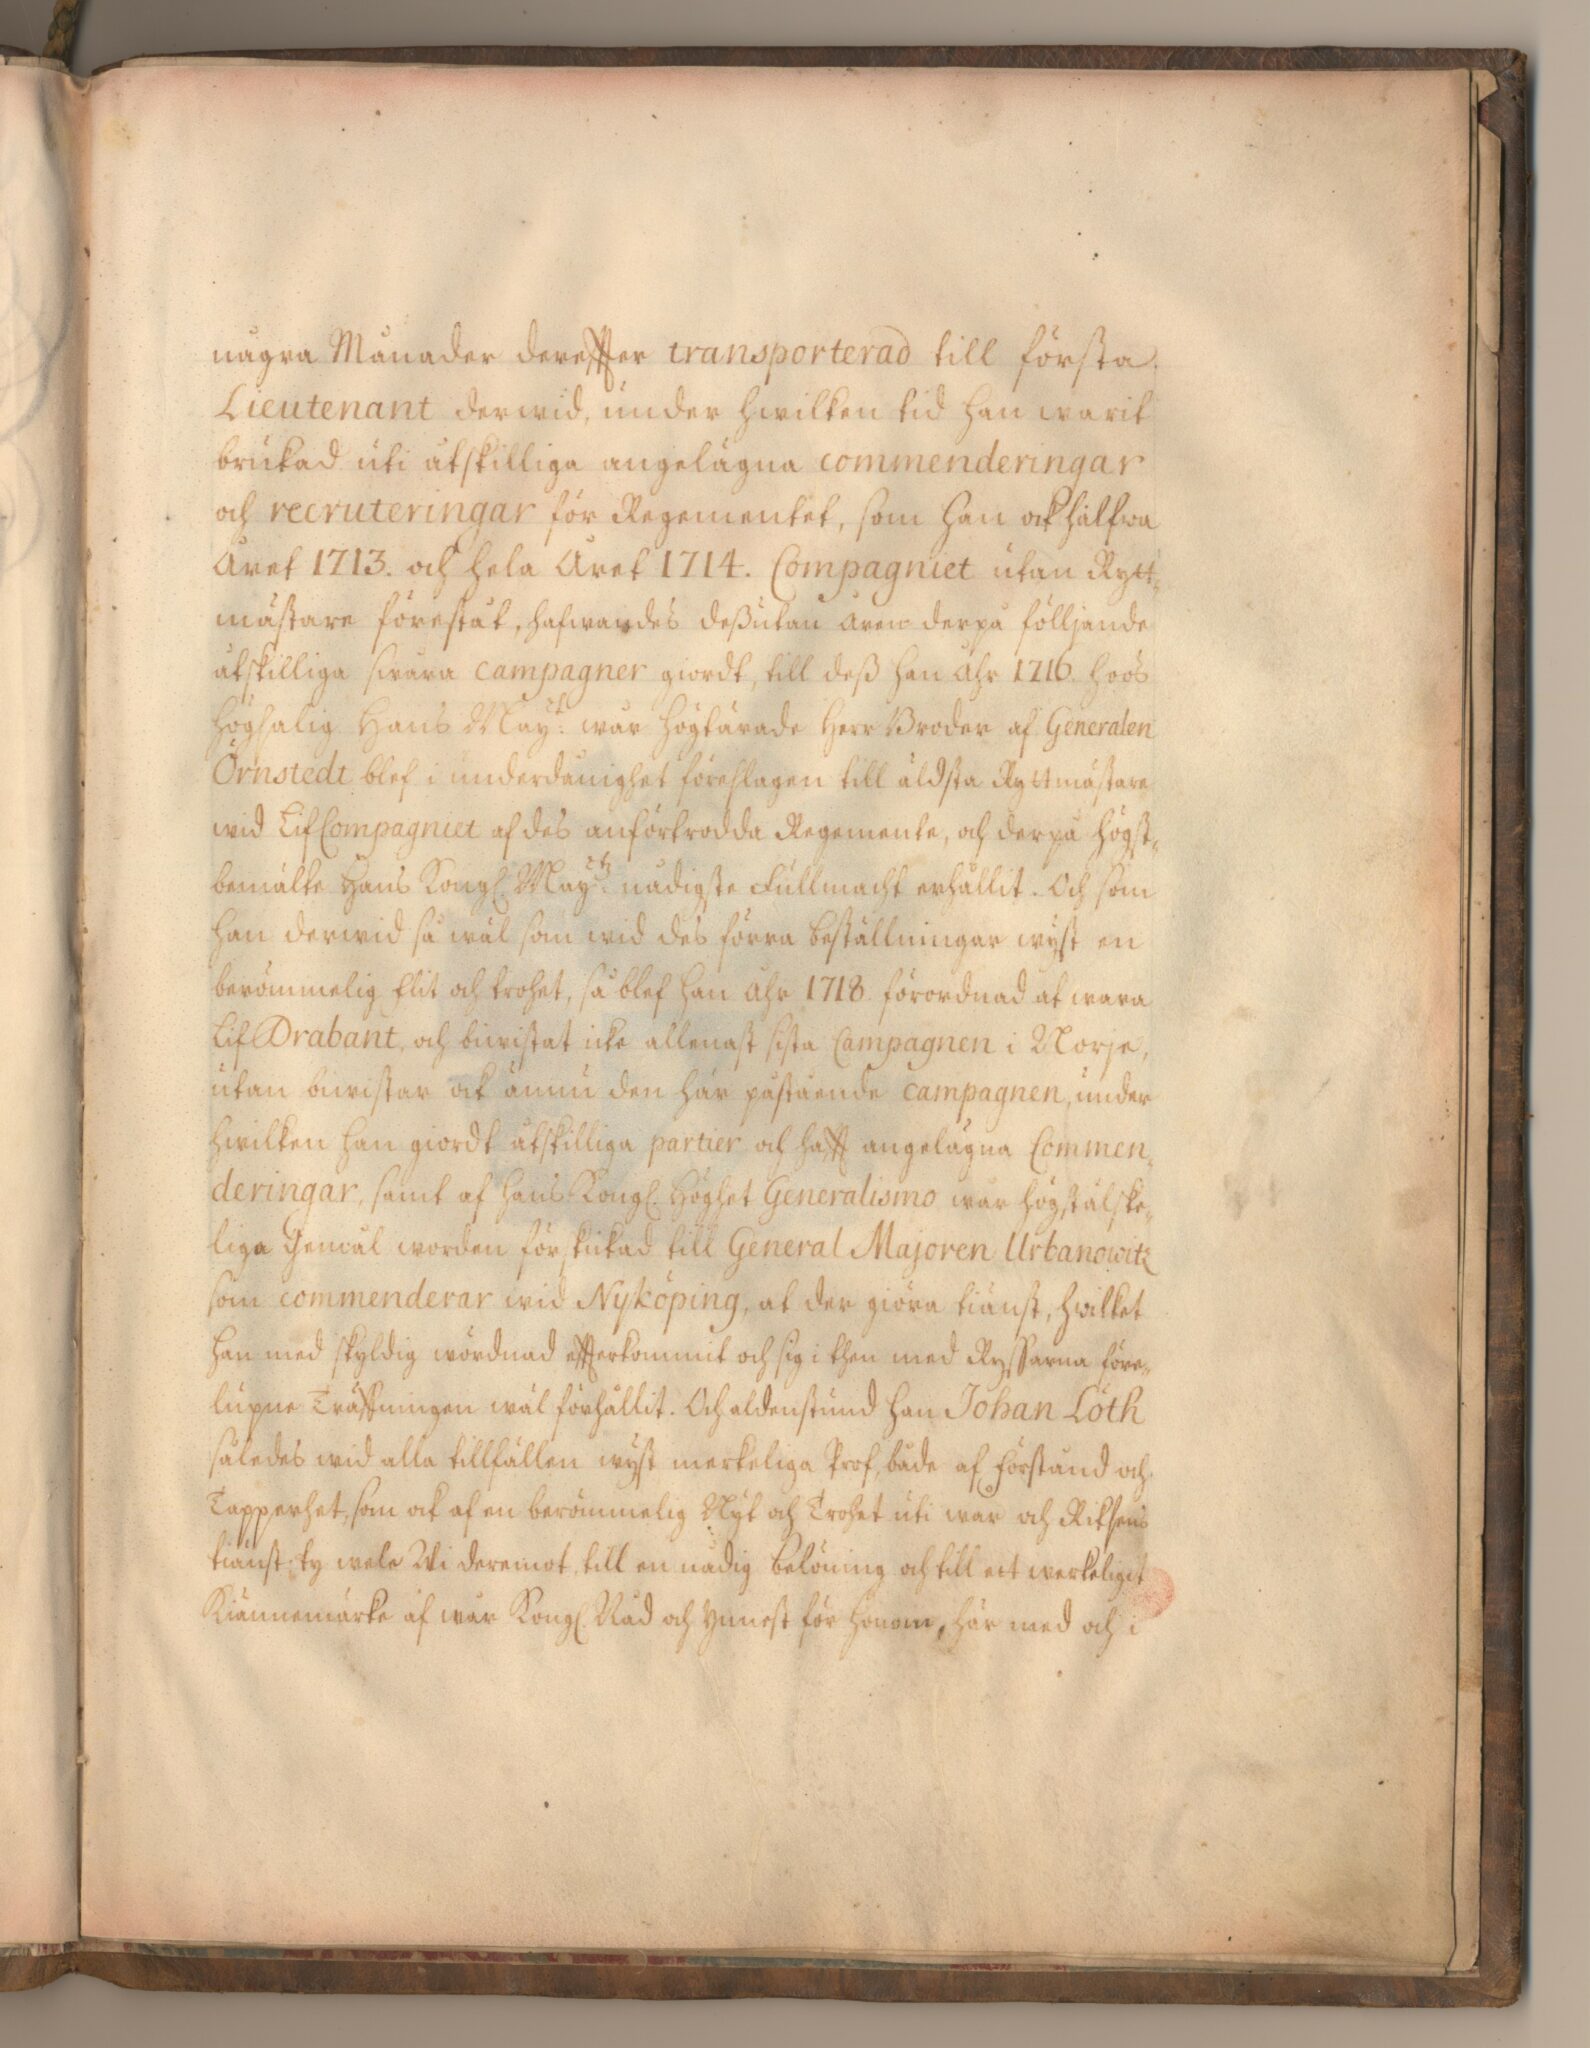 några Månader dereffter transporterad till första
Lieutenant derwid, under hwilken tid han warit
brukad uti åtskilliga angelägna commenderingar
och recruteringar för Regementet, som han ock halfwa
Året 1713. och hela Året 1714. Compagniet utan Rytt-
mästare förestått, hafwandes deßutan Åren derpå följjande
åtskilliga swåra campagner giordt, till deß han Åhr 1716. hoos
Högsalig Hans May:tt wår högtärade Herr Broder af Generalen
Örnstedt blef i underdånighet föreslagen till äldsta Ryttmästare
wid Lif Compagniet af des anförtrodda Regemente, och derpå högst-
bemälte Hans Kongl. May:tz nådigste Fullmacht erhållit. Och som
han derwid så wäl som wid des förra beställningar wijst en
berömmelig flit och trohet, så blef han Åhr 1718. förordnad at wara
Lif Drabant, och biwistat icke allenast sista Campagnen i Norje,
utan biwistar ock ännu den här påstående campagnen, under
hwilken han giordt åtskilliga partier och hafft angelägna Commen-
deringar, samt af hans Kongl. Höghet Generalismo wår högstälske-
liga Gemål worden förskickad till General Majoren Urbanowitz
som commenderar wid Nyköping, at der giöra tiänst, hwilket
han med skyldig wördnad effterkommit och sig i then med Ryssarna före-
lupne Träffningen wäl förhållit. Och aldenstund han Johan Löth
således wid alla tillfällen wijst merkeliga Prof, både af förstånd och
Tapperhet, som ock af en berömmelig Nijt och Trohet uti wår och Riksens
tiänst: ty wele Wi deremot, till en nådig belöning och till ett werkeligit
Kiännemärke af wår Kongl. Nåd och ynnest för honom, här med och i